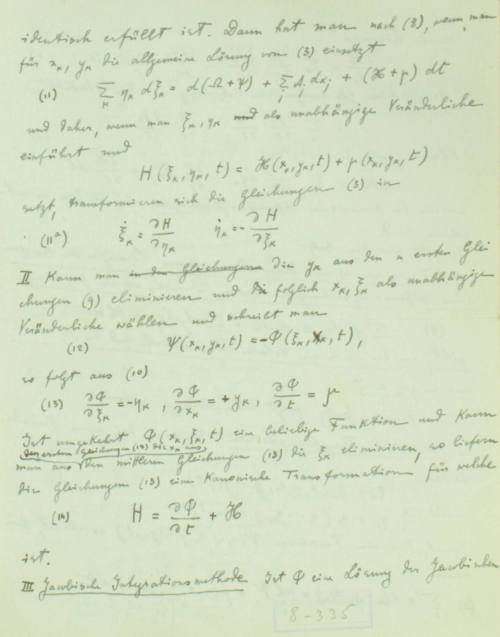 identisch erfüllt ist. Dann hat man nach (3), wenn man
für xκ, yκ die allgemeine Lösung von (3) einsetzt
(11) Σκ ηκ dξκ = d(Ω+Ψ) + Σj Aj dαj + (ℋ+μ) dt
und daher, wenn man ξκ, ηκ als unabhängige Veränderliche
einführt und
H(ξκ, ηκ, t) = ℋ(xκ, yκ, t) + μ(xκ, yκ, t)
setzt, transformieren sich die Gleichungen (3) in
(11a) ξ̇κ = ∂H/∂ηκ η̇κ = -∂H/∂ξκ
II Kann man in den Gleichungen die yκ aus den n ersten Glei
chungen (9) eliminieren und folglich xκ, ξκ als unabhängige
Veränderliche wählen und schreibt man
(12) Ψ(xκ, yκ, t) = -Φ(ξκ, xκ, t),
so folgt aus (10)
(13) ∂Φ/∂ξκ = -ηκ, ∂Φ/∂xκ = +yκ, ∂Φ/∂t = μ
Ist umgekehrt Φ(xκ, ξκ, t) eine beliebige Funktion und kann
man aus den mittleren Gleichungen (13) die ξκ eliminieren, so liefern
die Gleichungen (13) eine kanonische Transformation für welche
(14) H = ∂Φ/∂t + ℋ
ist.
III Jacobische Integrationsmethode Ist Φ eine Lösung der Jacobischen
8-335